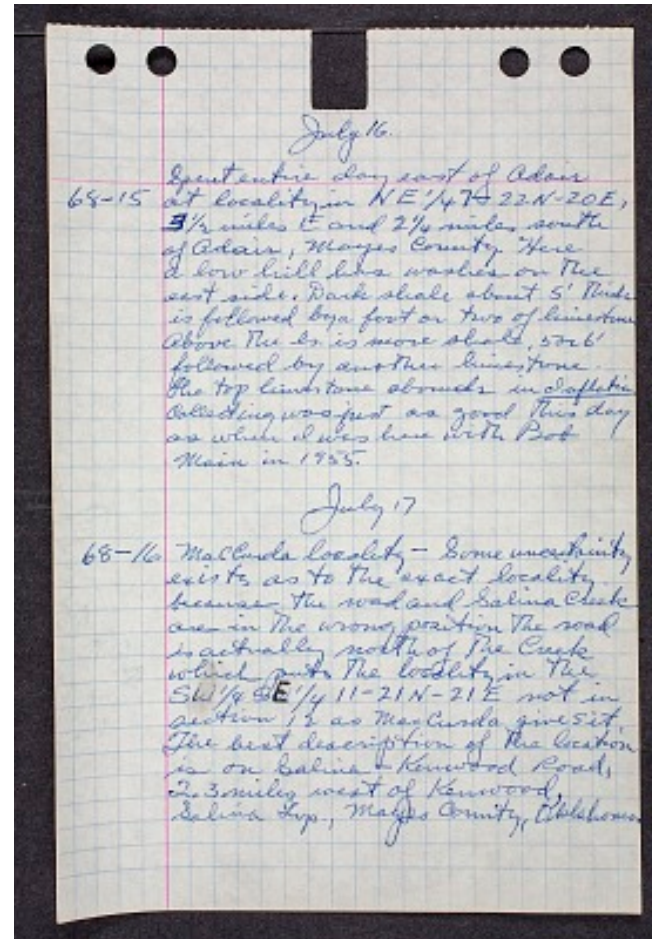 July 16.
Spent entire day east of Adair
68-15 at locality in NE 1/4 7-22N-20E,
3 1/2 miles E and 2 1/4 miles south
of Adair, Mayes County Here
a low hill has washes on the
east side. Dark shale about 5' thick
is followed by a foot or two of limestone
Above the ls is more shale, 5 or 6'
followed by another limestone.
The top limestone abounds in
Collecting was just as good this day
as when I was here with Bob
Main in 1955.
July 17
68-16 MacCurda locality - Some uncertainty
exists as to the exact locality
because the road and Salina Creek
are in the wrong position The road
is actually north of the Creek
which puts the locality in the
1/4 SE 1/4 11-21N-21E not in
section 12 as MacCurda gives it.
The best description of the location
is on Salina - Kenwood Road,
2.3 miles west of Kenwood,
Salina Twp., Mayes County, Oklahoma